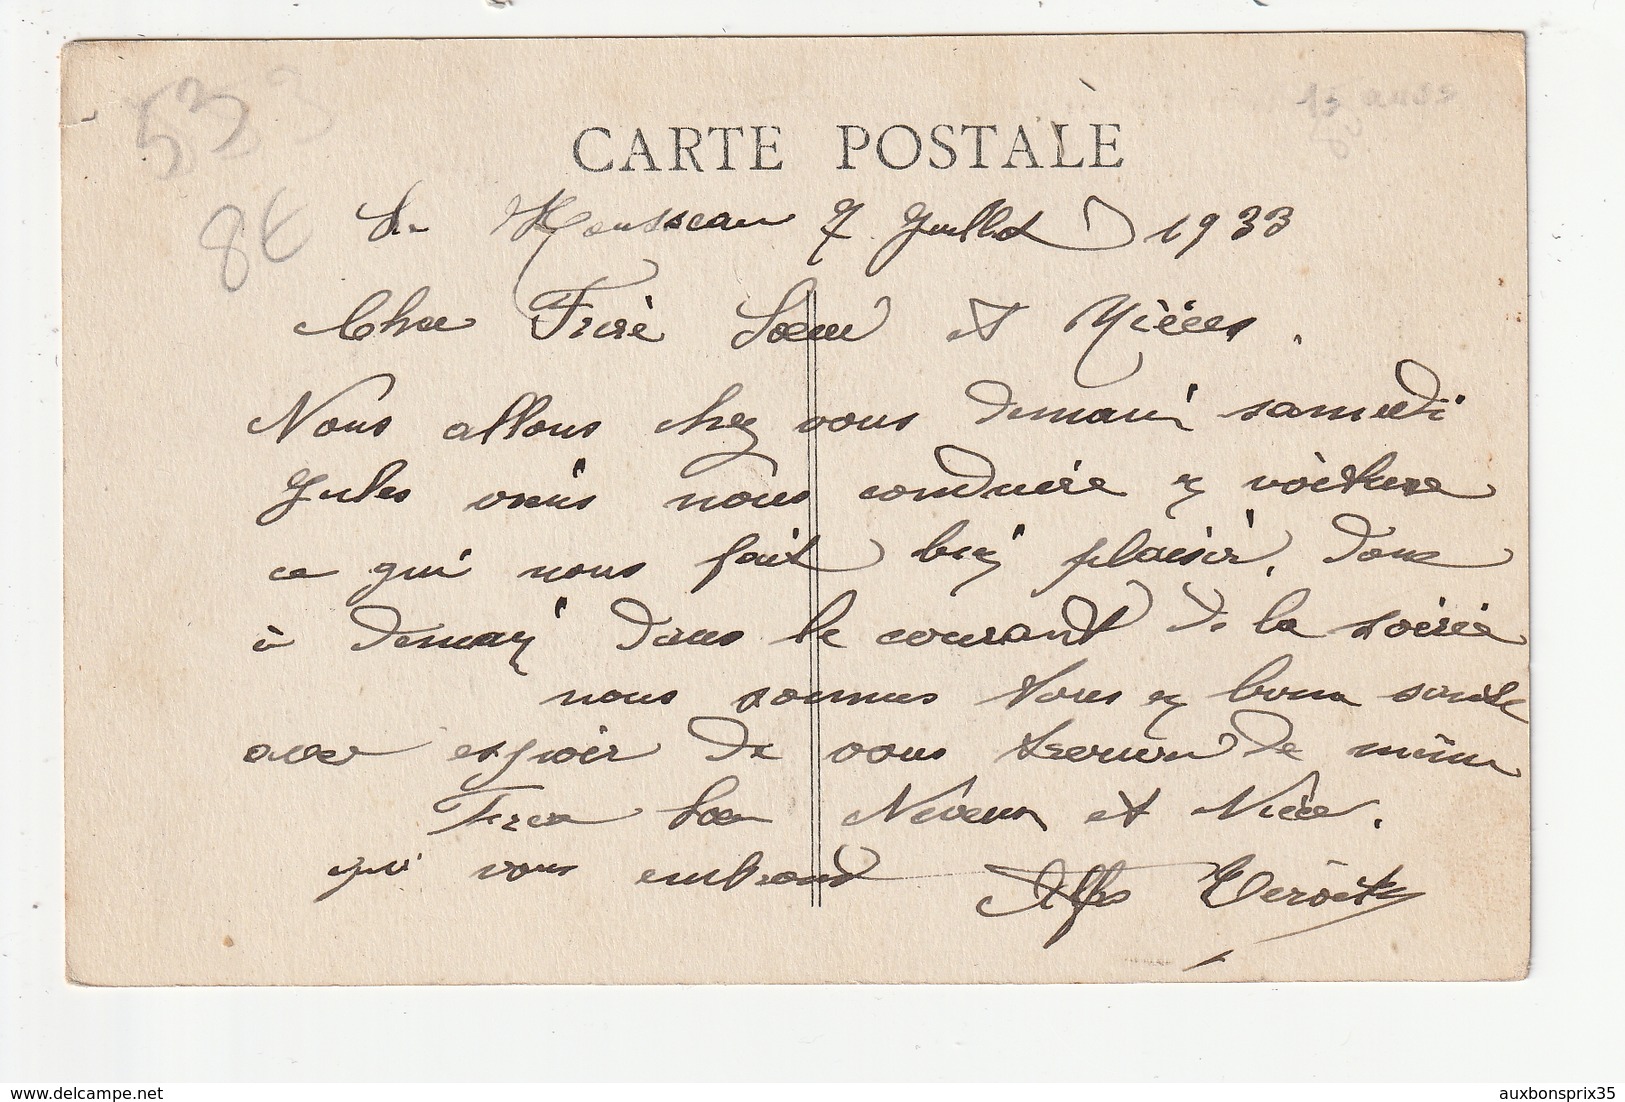 533
15 aurs
CARTE POSTALE
8€
Le Housseau 7 Juillet 1933
Cher Frère Sœur et Nièces.
Nous allons chez vous demain samedi
Jules viens nous conduire en voiture
ce qui nous fait bien plaisir. Donc
à demain dans le courant de la soirée
nous sommes tous en bonne santé
avec espoir de vous trouver de même
Frère Sœur Neveux et Nièce.
qui vous embrasse Alfs
auxbonsprix35
www.delcampe.net